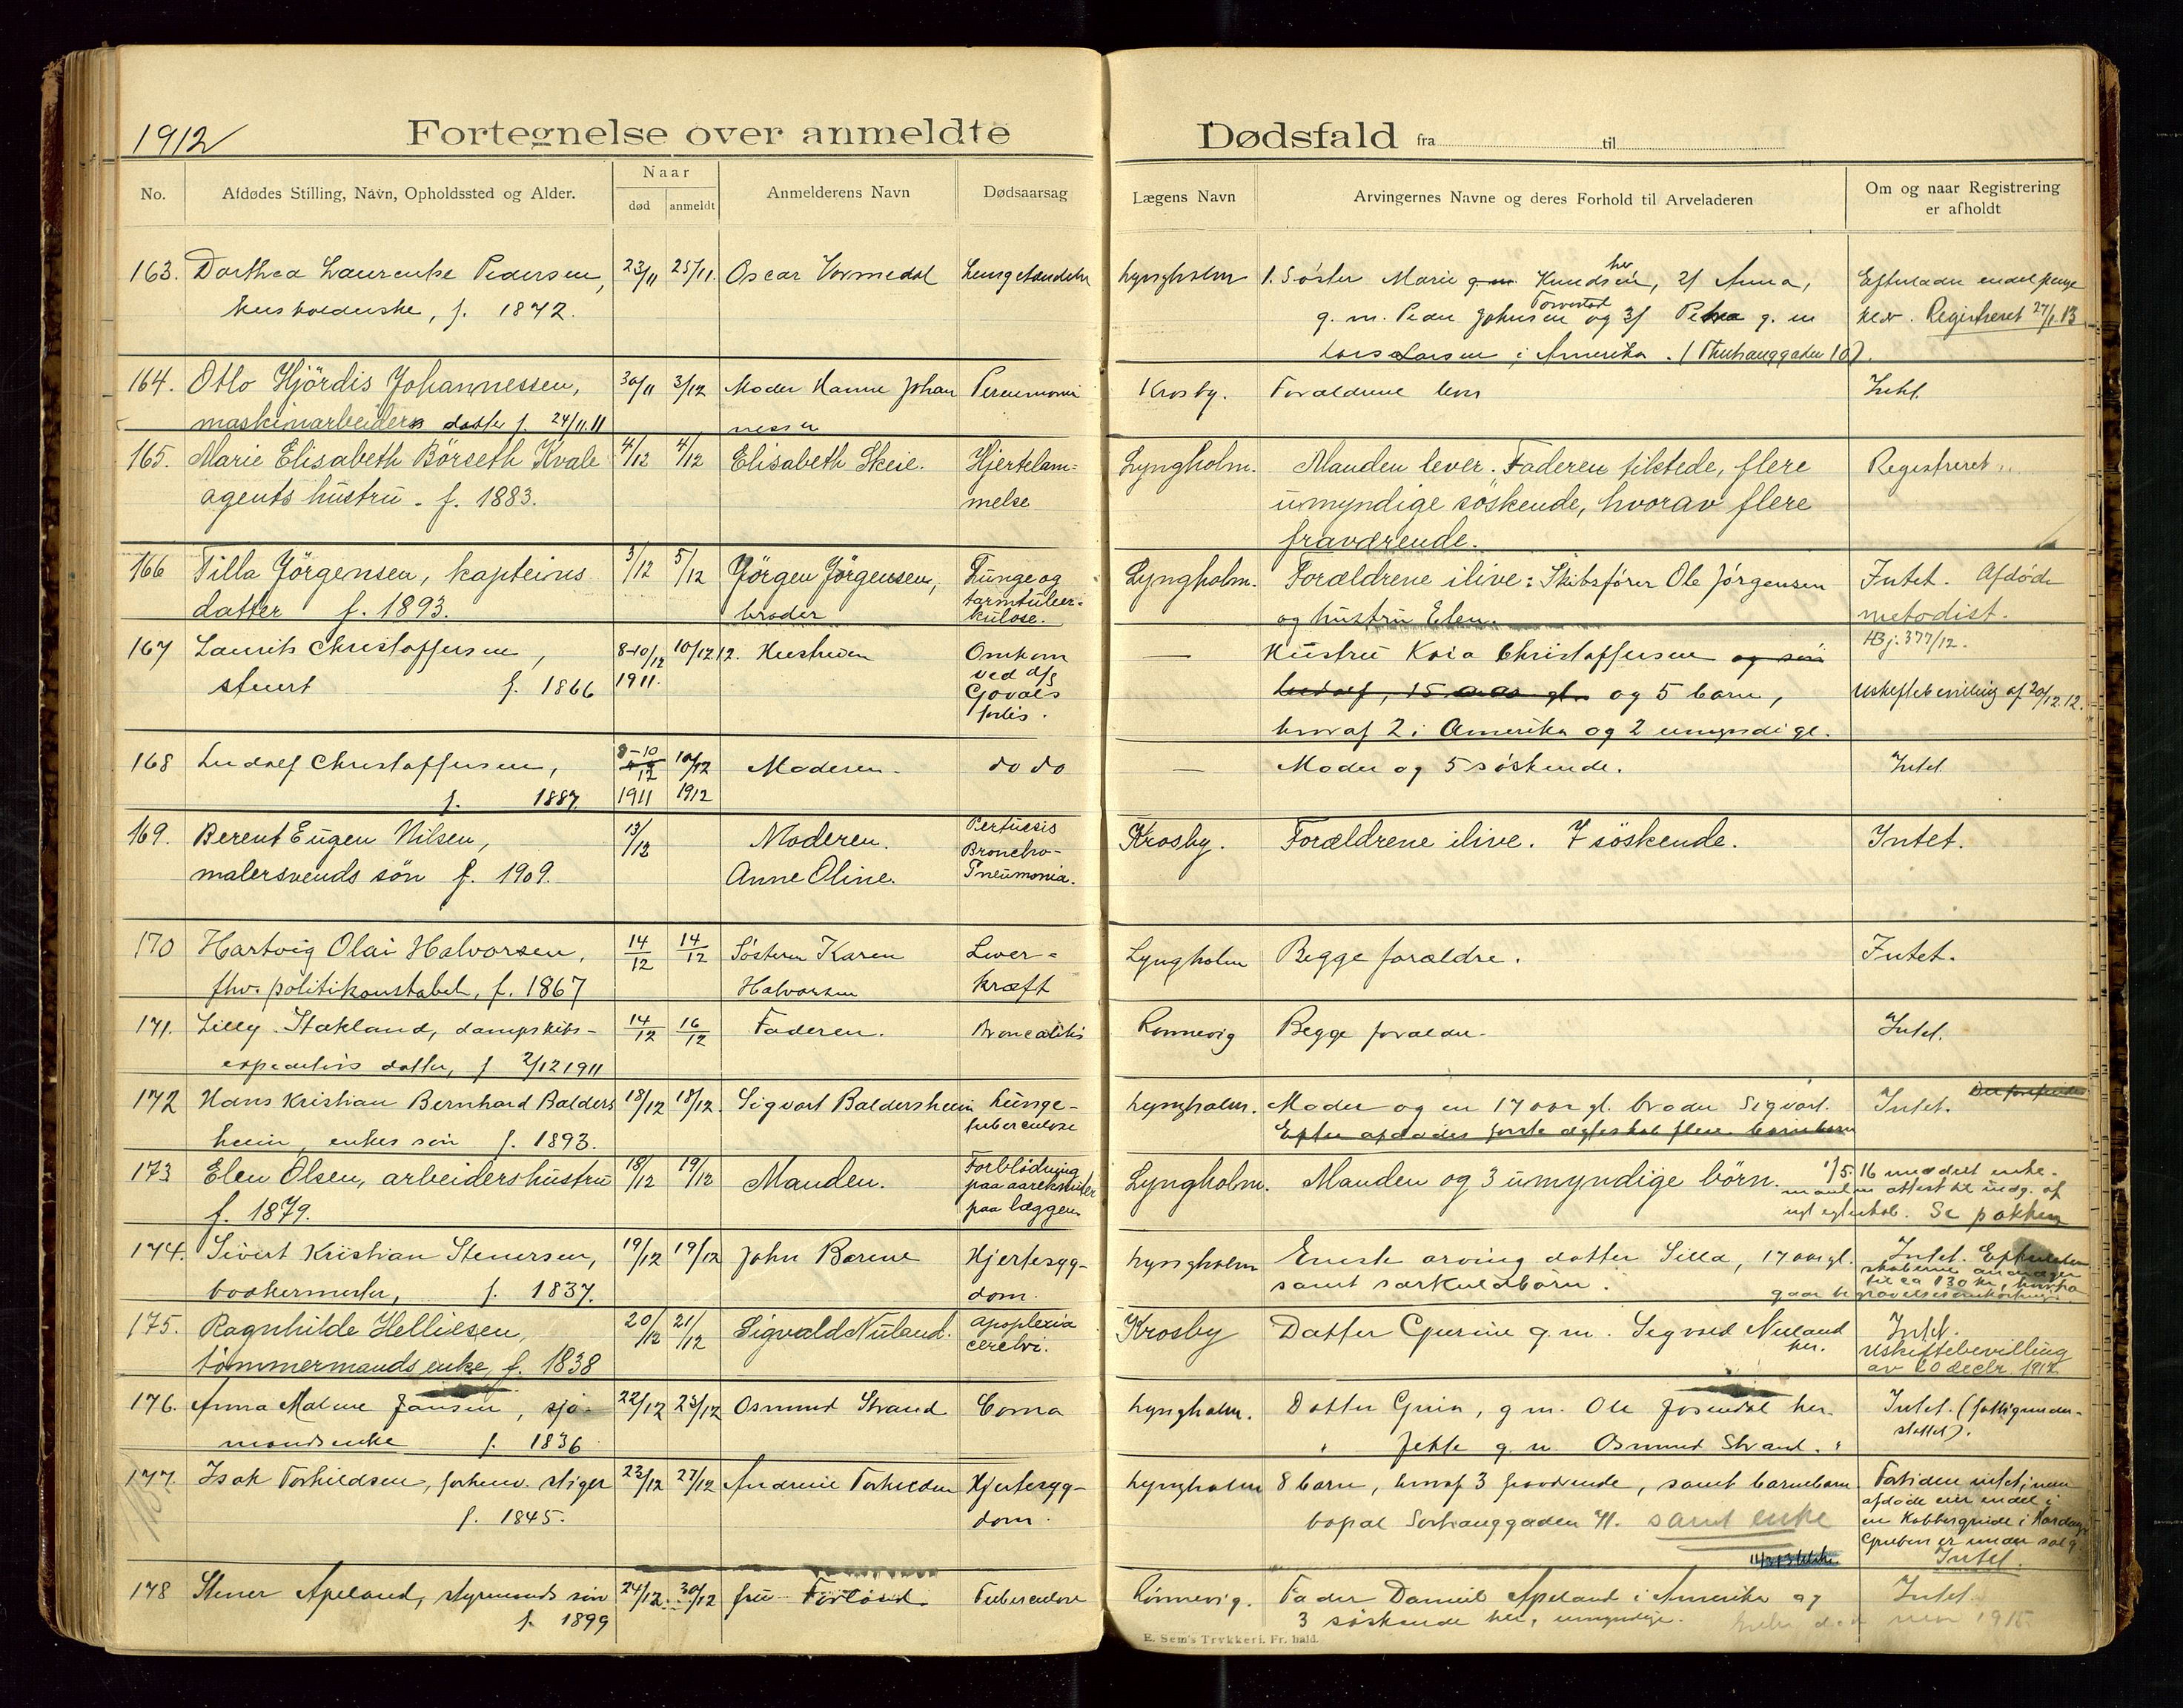 1912
Fortegnelse over anmeldte Dødsfald fra til
No.
Afdødes Stilling, Navn, Opholdssted og Alder.
Naar
død
anmeldt
Anmelderens Navn
Dødsaarsag
Lægens Navn
Arvingernes Navne og deres Forhold til Arveladeren
Om og naar Registrering
er afholdt
163. Dorthea Laurentse Pedersen, 23/11 25/11. Oscar Vormedal
husholderske, f. 1872.
Lyngholm 1. Søster Marie Knudsen, her 2/ Anna,
g. m. Peder Johnsen Torvestad og 3/ Petra g. m
Lars Larsen i Amerika.
Registreret 27/1 13
164. Otto Hjördis Johannessen, 30/11 3/12 Moder Hanne Johan
maskinarbeiders datter f. 24/11.11 nessen
Krosby. Forældrene lever Intet.
165. Marie Elisabeth Börseth Kvale 4/12 4/12 Elisabeth Skeie. Hjertelam=
agents hustru. f. 1883. melse
Lyngholm. Manden lever. Faderen tilstede, flere Registreret
umyndige söskende, hvorav flere
fraværende.
166 Tilla Jörgensen, kapteins 3/12 5/12 Jörgen Jörgensen, Lunge og
datter f. 1893. broder tarmtuber=
kulose.
Lyngholm. Forældrene ilive: Skibsfører Ole Jörgensen Intet. Afdøde
og hustru Elen. metodist.
167 Laurits Christoffersen, 8-10/12 10/12 12. Hustruen Omkom
stuert f. 1866 1911. ved d/s
Govals
forlis.
— Hustru Kaia Christoffersen og sön HBj. 377/12.
Ludolf, 15 aar gl. og 5 barn, Uskiftebevilling af 20/12.12.
hvoraf 2 i Amerika og 2 umyndige.
168 Ludolf Christoffersen, 8-10/12 10/12 Moderen do do
f. 1887 1911 1912
— Moder og 5 søskende. Intet
169. Berent Eugen Nilsen, 13/12 Moderen. Pertussis
malersvends sön f. 1909. Anne Oline. Broncho-
Pneumonia.
Krosby. Forældrene ilive. 7 söskende. Intet.
170 Hartvig Olai Halvorsen, 14/12 14/12 Søsteren Karen Lever=
fhv. politikonstabel, f. 1867 Halvorsen kræft
Lyngholm Begge forældre. Intet.
171. Lilly Stakland, dampskibs- 14/12 16/12 Faderen.
expeditörs datter, f 2/12 1911
Rønnevig Begge forældre Intet.
172 Hans Kristian Bernhard Balders 18/12 18/12. Sigvart Baldersheim Lunge-
heim, enkes sön f. 1893. tuberculose
Lyngholm. Moder og en 17 aar gl. broder Sigvart. Intet.
173 Elen Olsen, arbeidershustru 18/12 19/12 Manden. Forblödning
f. 1879. paa aareknuter
paa læggen
Lyngholm. Manden og 3 umyndige börn. 1/5.16 meddelt enke-
manden attest til indg. af
nyt egteskab. Se pakken
174. Sivert Kristian Stenersen, 19/12 19/12 John Børene Hjertesyg-
bødkermester, f. 1837. dom.
Lyngholm Eneste arving datter Silla, 17 aar gl. Intet.
samt særkuldbørn.
175. Ragnhilde Helliesen, 20/12 21/12 Sigvald Nuland. Apoplexia
tömmermands enke, f. 1838 cerebri.
Krosby Datter Gurine g. m. Sigvald Nuland Intet.
her. Uskiftebevilling
av 20 decbr. 1912
176. Anna Malene Jansen, sjø- 22/12 23/12 Osmund Strand Coma
mandsenke f. 1836
Lyngholm. Datter Guria, g m. Ole Josendal her. Intet. (fattigunder-
" Jette g. m Osmund Strand. " støttet).
177. Isak Torkildsen, forhenv. stiger 23/12 27/12 Andreine Torkildsen Hjertesyg-
f. 1845. dom.
Lyngholm 8 barn, hvoraf 3 fraværende, samt barnebarn Fortiden intet; men
bopæl Sørhauggaden 41. samt enke afdøde eier endel i
en Kobbergrube i
Gruben er under salg
Intet.
178 Stener Apeland, styrmands sön 24/12. 30/12 fru Förland. Tuberculose
f. 1899
Rønnevig. Fader Daniel Apeland i Amerika og Intet.
3 søskende her, umyndige.
E. Sem's Trykkeri. Fr. hald.